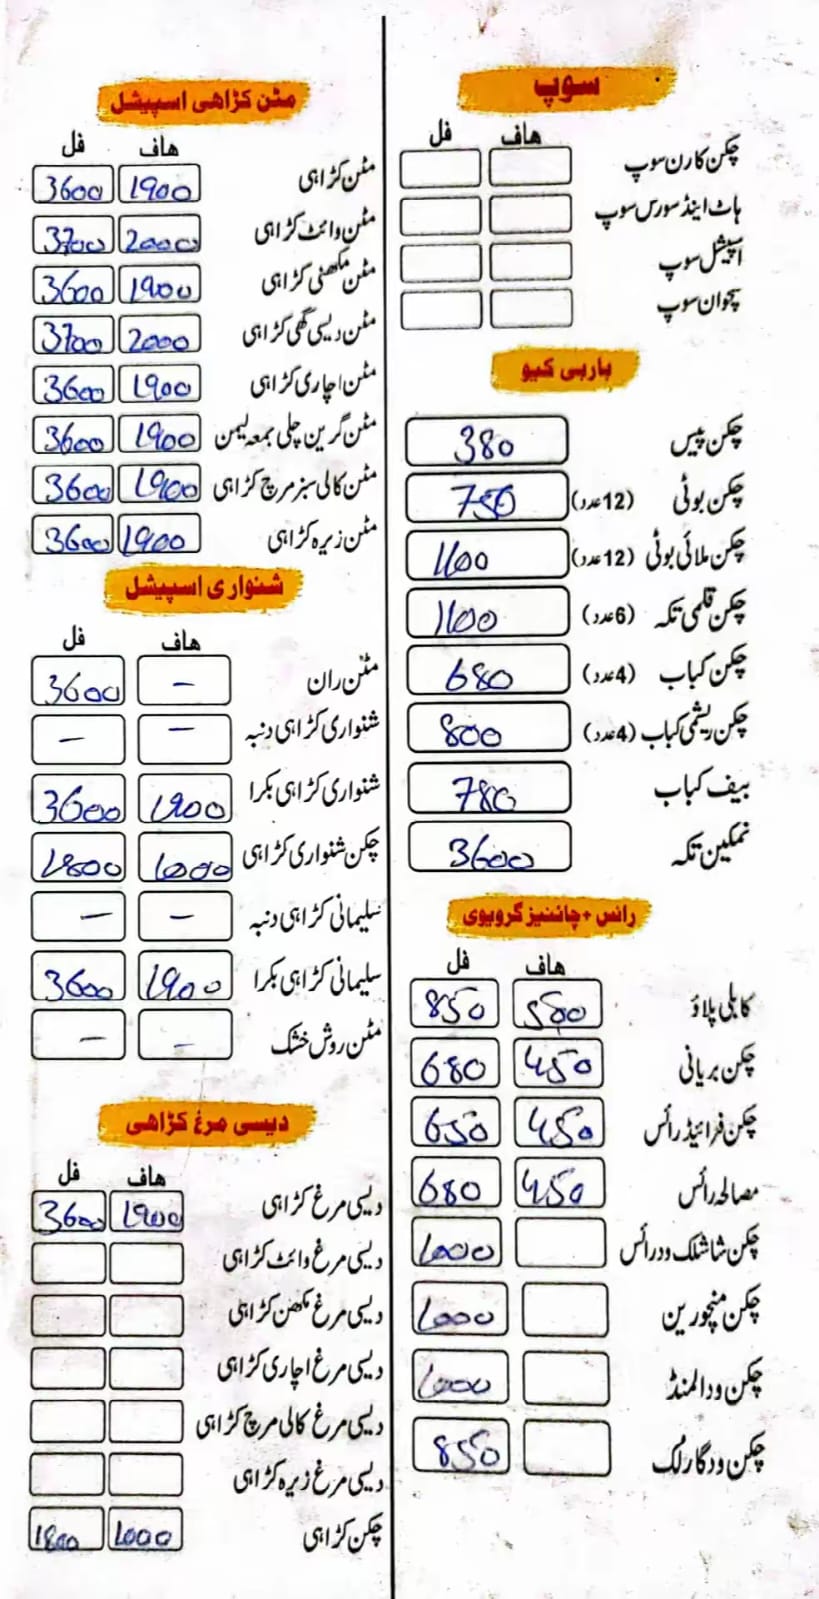 سوپ
فل ھاف
چکن کارن سوپ
ہاٹ اینڈ سورس سوپ
اسپیشل سوپ
سچوان سوپ
باربی کیو
چکن پیس 380
چکن بوٹی (12 عدد) 750
چکن ملائی بوٹی (12 عدد) 1100
چکن قلمی تکہ (6 عدد) 1100
چکن کباب (4 عدد) 680
چکن ریشمی کباب (4 عدد) 800
بیف کباب 780
نمکین تکہ 3600
رائس + چائنیز گرویوی
ھاف فل
کابلی پلاؤ 500 850
چکن بریانی 450 680
چکن فرائیڈ رائس 450 650
مصالحہ رائس 450 680
چکن شاشلک ود رائس 1000
چکن منچورین 1000
چکن ود المنڈ 1000
چکن ود گارلک 850
مٹن کڑاھی اسپیشل
ھاف فل
مٹن کڑاہی 1900 3600
مٹن وائٹ کڑاہی 2000 3700
مٹن مکھنی کڑاہی 1900 3600
مٹن دیسی گھی کڑاہی 2000 3700
مٹن اچاری کڑاہی 1900 3600
مٹن گرین چلی بمعہ لیمن 1900 3600
مٹن کالی سبز مرچ کڑاہی 1900 3600
مٹن زیرہ کڑاہی 1900 3600
شنواری اسپیشل
ھاف فل
مٹن ران - 3600
شنواری کڑاہی دنبہ - -
شنواری کڑاہی بکرا 1900 3600
چکن شنواری کڑاہی 1000 1800
سلیمانی کڑاہی دنبہ - -
سلیمانی کڑاہی بکرا 1900 3600
مٹن روش خشک - -
دیسی مرغ کڑاھی
ھاف فل
دیسی مرغ کڑاہی 1900 3600
دیسی مرغ وائٹ کڑاہی
دیسی مرغ مکھن کڑاہی
دیسی مرغ اچاری کڑاہی
دیسی مرغ کالی مرچ کڑاہی
دیسی مرغ زیرہ کڑاہی
چکن کڑاہی 1000 1800